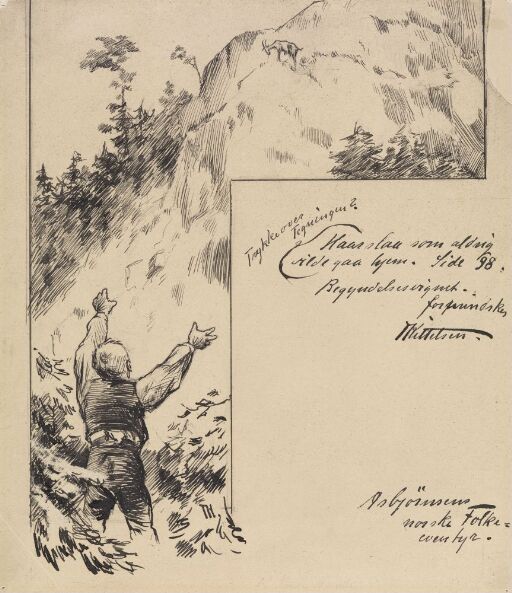 Trykkes over
Tegningen?
Haarslaa som aldrig
vilde gaa hjem. Side 98.
Begyndelsesvignet.
forminskes
ThKittelsen.
Asbjörnsens
norske Folke=
eventyr.